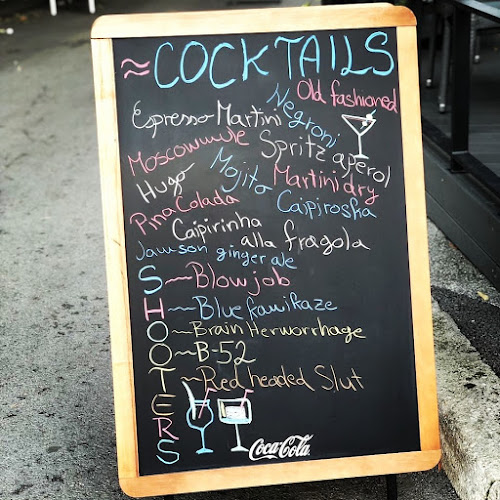 ≈COCKTAILS
Old fashioned
Espresso Martini Negroni
Moscowmule Spritz aperol
Hugo Mojito Martini dry
Pina Colada Caipiroska
Caipirinha alla fragola
Jamson ginger ale
SHOOTERS
~Blowjob
~Blue kawikaze
~Brain Hemorrhage
~B-52
~Red headed Slut
Coca-Cola